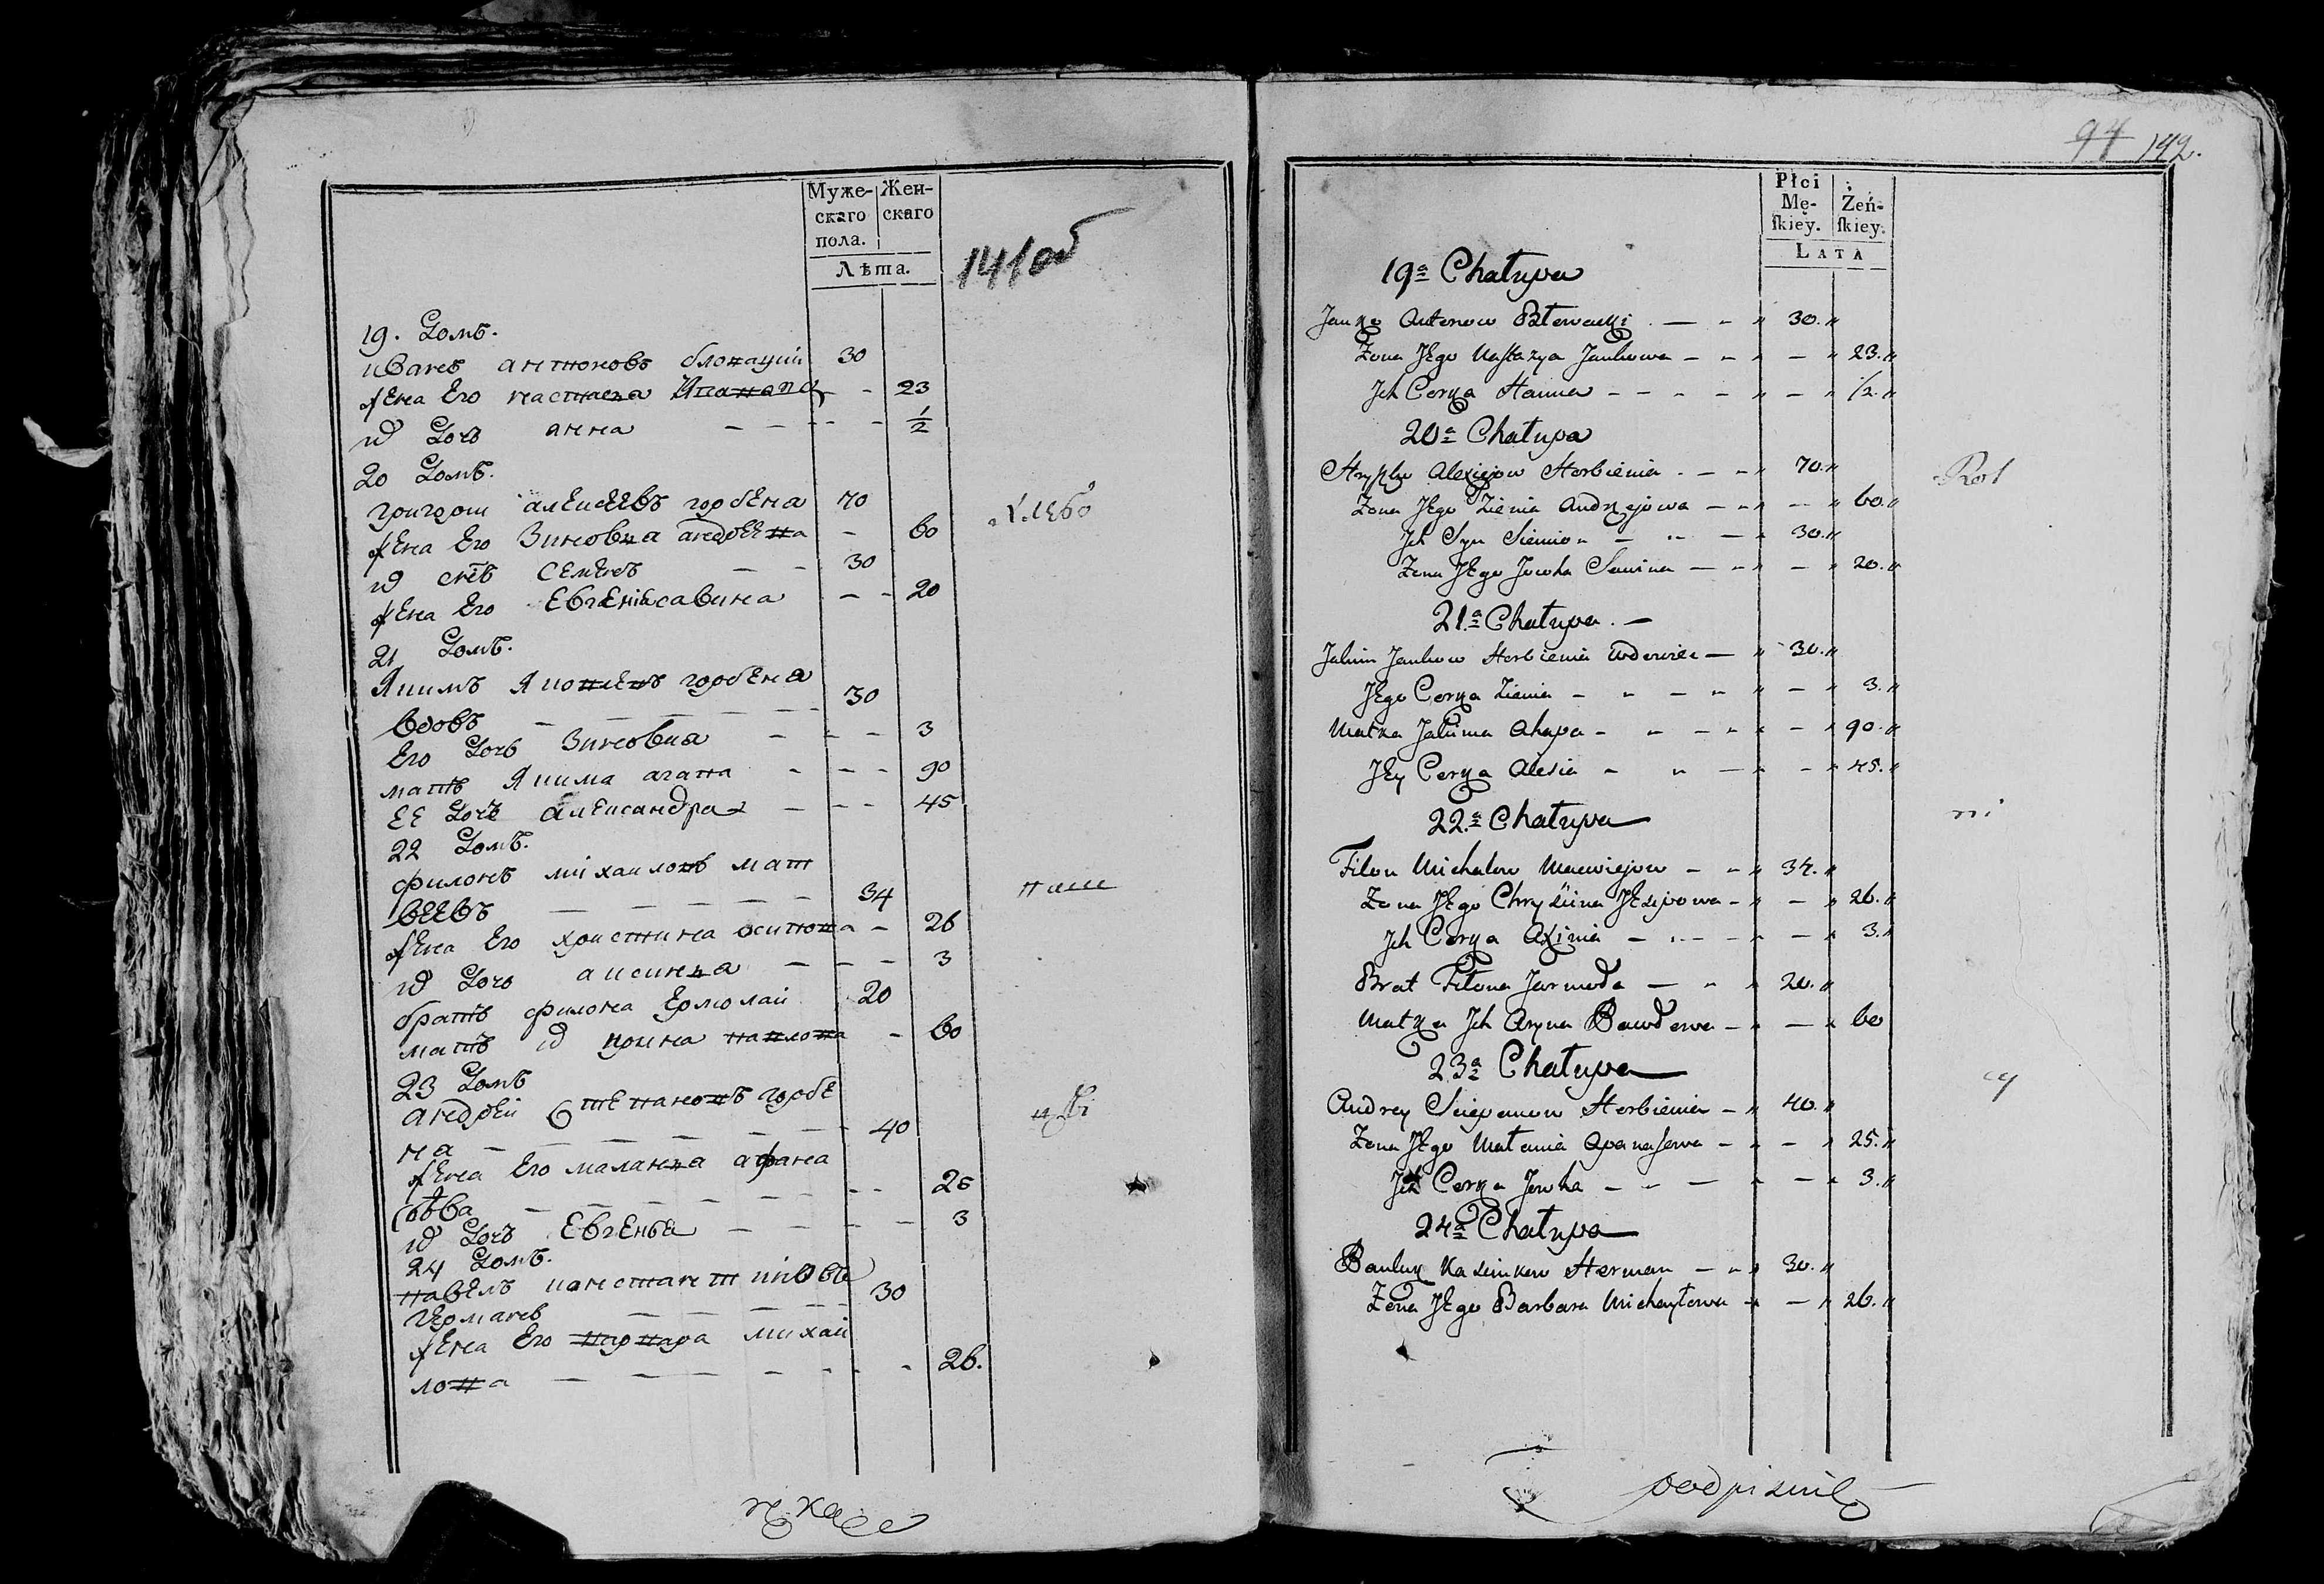 Муже-
скаго
пола.
Жен-
скаго
Лѣта.
141 об
19. Домъ.
иванъ антоновъ блоцкий 30
жена Его настасья - 23
их Дочь анна - - - - - 1/2
20 Домъ.
григори алексеевъ горбена 70
жена Его Зиновия андреева - 60
их снъ семенъ - - 30
жена Его Евгения савина - - 20
21 Домъ.
Якимъ Яковлевъ горбена
вдовъ - - - - - - 30
Его Дочь Зиновия - - - 3
мать Якима агапа - - - 90
ЕЕ Дочь александра - - - 45
22 Домъ.
филонъ михаиловъ мат
веевъ - - - - - 34
жена Его христина осипова - 26
их Дочь аксинья - - - 3
братъ филона Ермолай 20
мать их ирина павлова - 60
23 Домъ
андрей степановъ горбе
на - - - - - - 40
жена Его маланья афана
сьева - - - - - - - 25
их Дочь Евгенья - - - - 3
24 Домъ.
павелъ константиновъ
германъ - - - - 30
жена Его варвара михай
лова - - - - - - 26.
94 142.
Płci
Mę-
ſkiey.
Żeń-
ſkiey.
LATA
19a Chałupa
Janko Antonow - - " 30."
Żona JEgo Nastazya Jankowa - - " - " 23."
Ich Corka Hanna - - - - " - " 1/2."
20a Chałupa
Hryszko Alexiejow Horbienia - - " 70."
Żona JEgo Zienia Andrzejowa - - " - " 60."
Ich Syn Siemion - " - " 30."
Żona JEgo Jowha Sawina - - " - " 20."
21a Chałupa. -
Jakim Jankow Horbienia wdowiec - " 30."
JEgo Corka Zienia - " - " " - " 3."
Matka Jakima Ahapa - " - " " - " 90."
JEy Corka Alesia - " - " - " 45."
22a Chałupa
Filon Michałow Maciejow - - " 34."
Żona JEgo Chrystina JEsipowa - " - " 26."
Ich Corka Axinia - " - - " - " 3."
Brat Filona Jarmoła - " " 20."
Matka Ich Aryna Pawłowa - " - " 60
23a Chałupa
Andrey Sciepanow Horbienia - " 40."
Żona JEgo Matania Apanasowa - " - " 25."
Ich Corka Jowha - - - " - " 3."
24a Chałupa
Pauluk Kasimirow Herman - - " 30."
Żona JEgo Barbara Michayłowa - " - " 26."
podpisuie